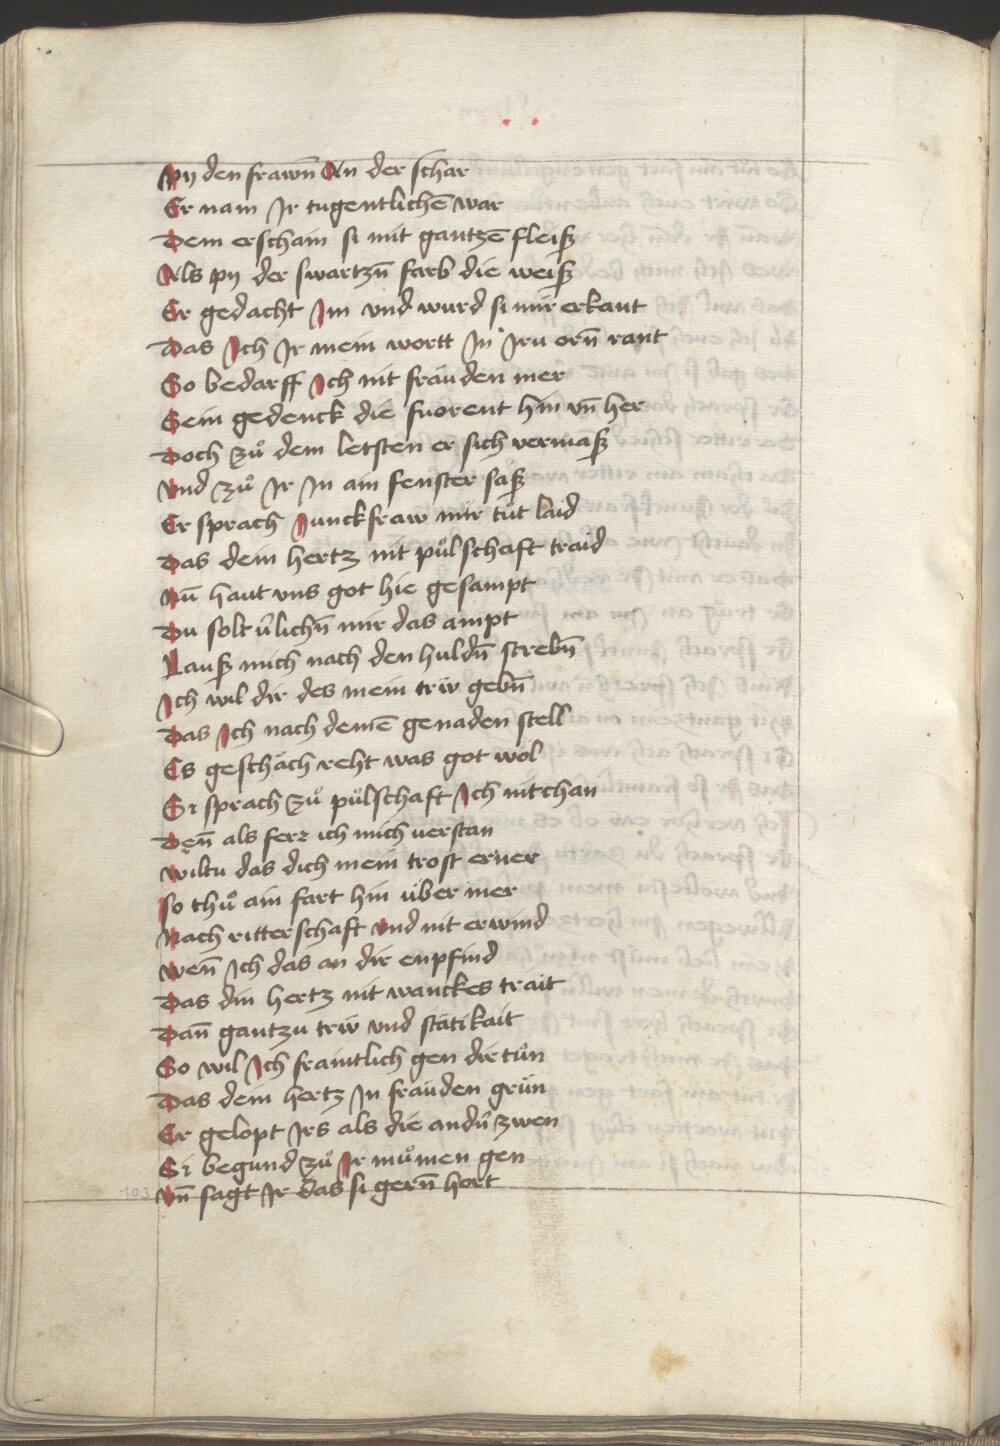 Py den frawn̄ An der schar
Er nam Jr tugentlichē war
Dem erschain si mit gantzē fleiß
Als py der swartzn̄ farb die weiß
Er gedacht Jm vnd wurd si mir erkant
Das Jch Jr mein wortt Jn Jru orn̄ rant
So bedarff Jch nit fräuden mer
Sein gedenck die fuorent hin vn̄ her
Doch zuͦ dem letsten er sich vermaß
Vnd zuͦ Jr Jn ain fenster saß
Er sprach Junckfraw mir tuͦt laid
Das dem hertz nit puͦlschaft traid
Nū haut vns got hie gesampt
Du solt v̄lichn̄ mir das ampt
Lauß mich nach den huldn̄ strebn̄
Jch wil dir des mein triw gebn̄
Das Jch nach deinē genaden stell
Es geschäch reht was got wöl
Si sprach zuͦ puͦlschaft Jch nit chan
Den̄ als ferr ich mich uerstan
Wiltu das dich mein trost erner
So thuͦ ain fart hin über mer
Nach ritterschaft vnd nit erwind
Wen̄ Jch das an dir enpfind
Das din hertz nit wanckes trait
Dan̄ gantzu triw vnd stätikait
So wil Jch fraintlich gen dir tuͦn
Das dein hertz Jn fräuden gruͤn
Er gelopt Jrs als die andn̄ zwen
Si begund zuͦ Jr muͦmen gen
Vn̄ sagt Jr das si gern̄ hort
103